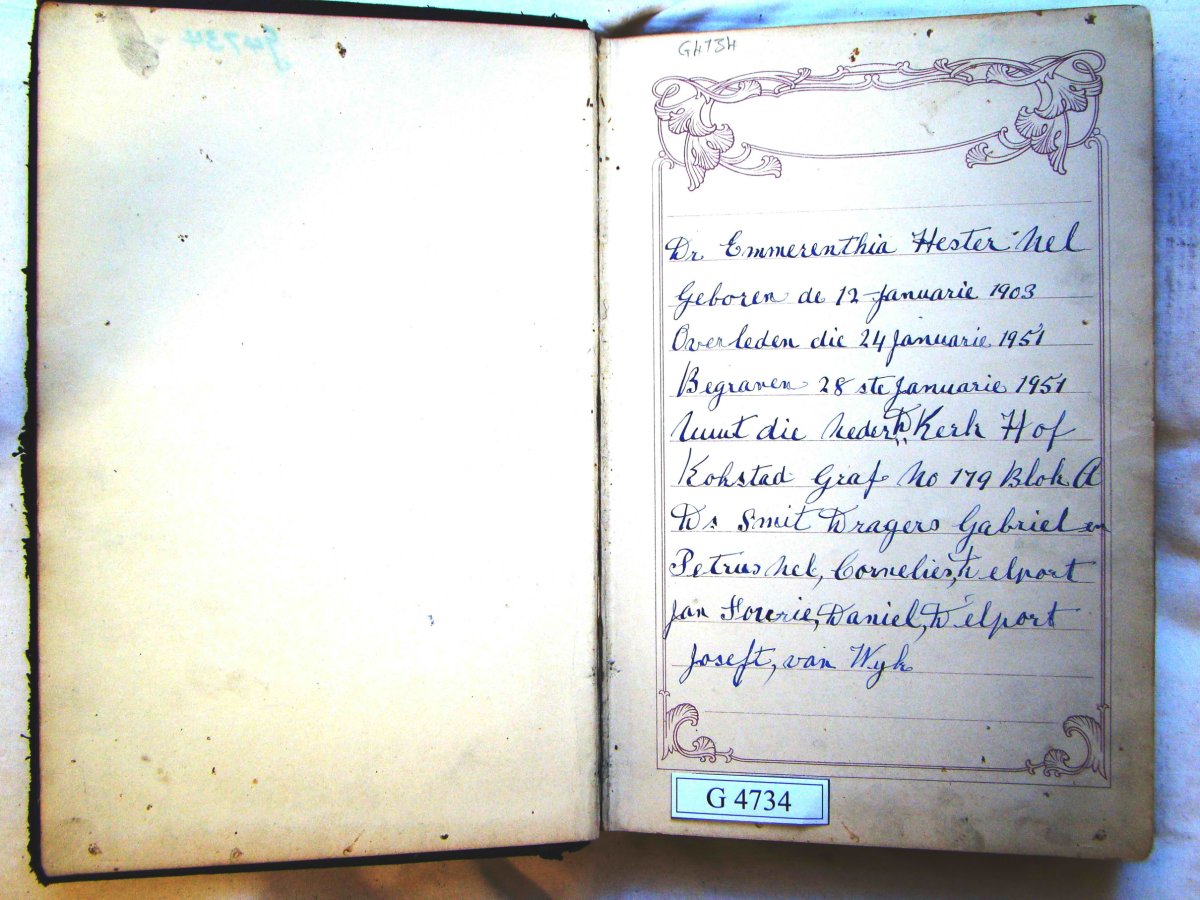 G4734
G4734
Dr Emmerenthia Hester Nel
Geboren de 12 Januarie 1903
Overleden die 24 Januarie 1951
Begraven 28 ste Januarie 1951
die Neder D Kerk Hof
Kokstad Graf No 179 Blok A
Ds Smit Dragers Gabriel en
Petrus Nel, Cornelies, Delport
Jan Fourie, Daniel, Delport
Joseft, van Wyk
G 4734